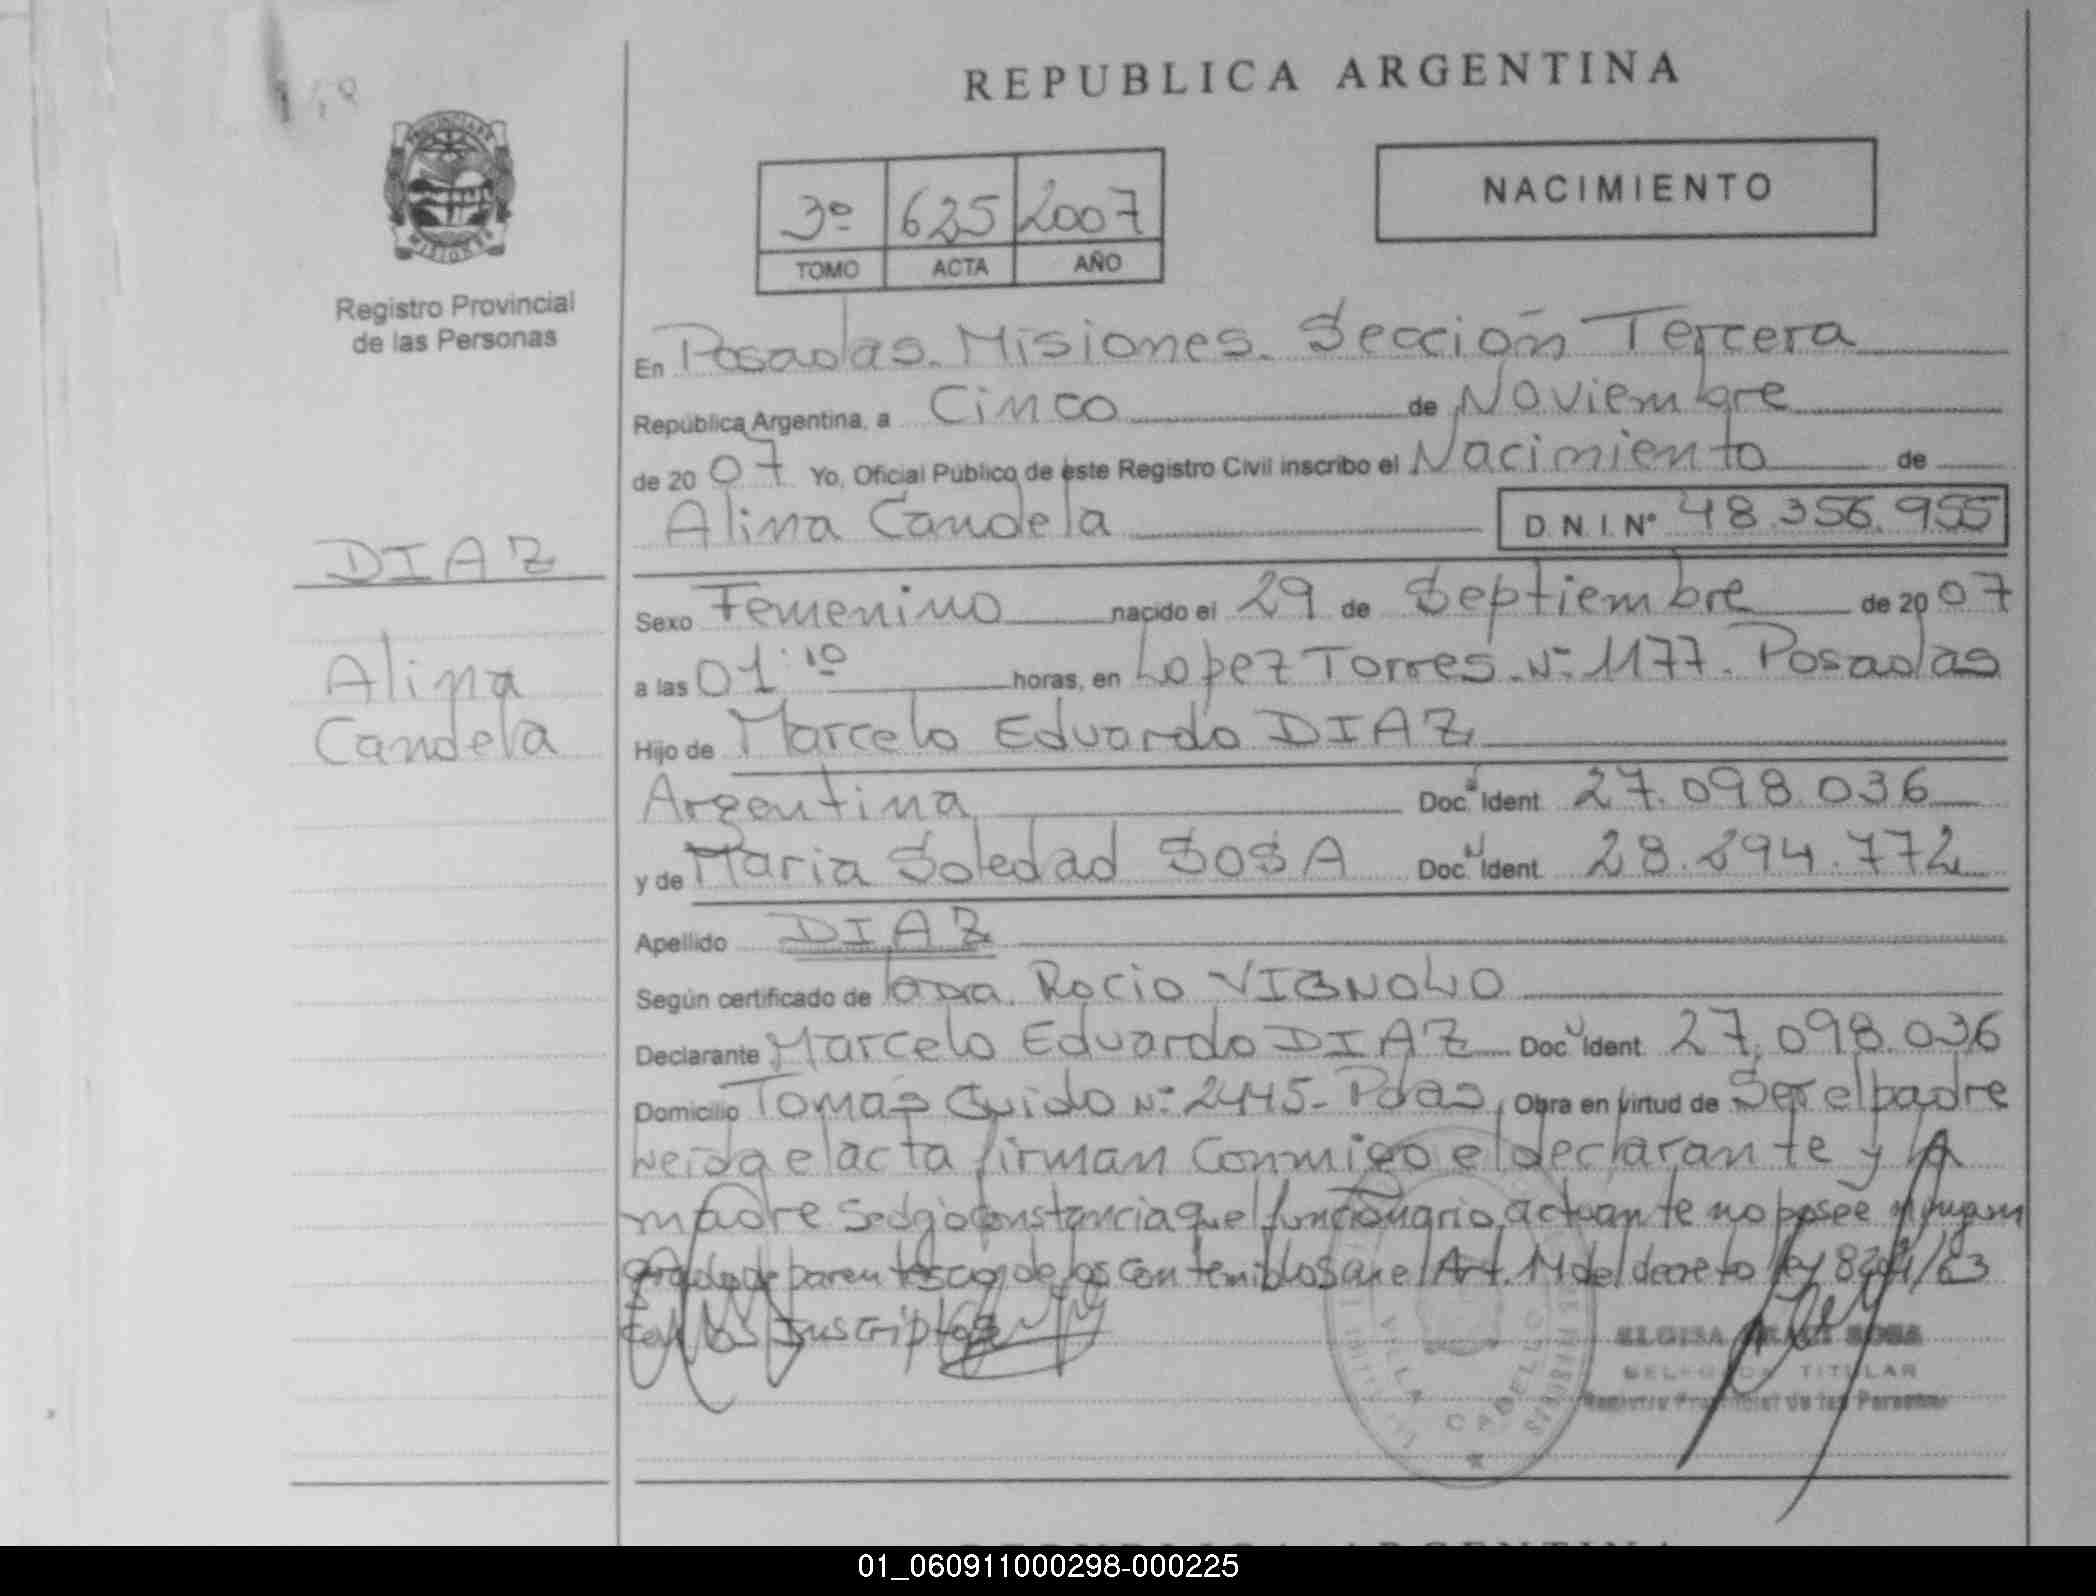 REPUBLICA ARGENTINA
NACIMIENTO
3º 625 2007
TOMO ACTA AÑO
PROVINCIA DE
MISIONES
Registro Provincial
de las Personas
En Posadas. Misiones. Sección Tercera
República Argentina, a Cinco de Noviembre
de 2007 Yo, Oficial Público de este Registro Civil inscribo el Nacimiento de
Alina Candela D.N.I. Nº 48.356.955
DIAZ
Alina
Candela
Sexo Femenino nacido el 29 de Septiembre de 2007
a las 01:10 horas, en Lopez Torres. Nº 1177. Posadas
Hijo de Marcelo Eduardo DIAZ
Argentina Doc. Ident. 27.098.036
y de Maria Soledad SOSA Doc. Ident. 28.294.772
Apellido DIAZ
Según certificado de la Dra. Rocio VIGNOLO
Declarante Marcelo Eduardo DIAZ Doc. Ident. 27.098.036
Domicilio Tomás Guido Nº 2445- Pdas, Obra en virtud de Ser el padre
Leida el acta firman Conmigo el declarante y la
madre Se deja constancia que el funcionario actuante no posee ningun
grado de parentesco de los contenidos en el Art. 14 del decreto ley 8204/63
con los Inscriptos
VILLA CABELLO
MISIONES
SOSA
TITULAR
Registro Provincial de las Personas
REPUBLICA ARGENTINA
01_060911000298-000225